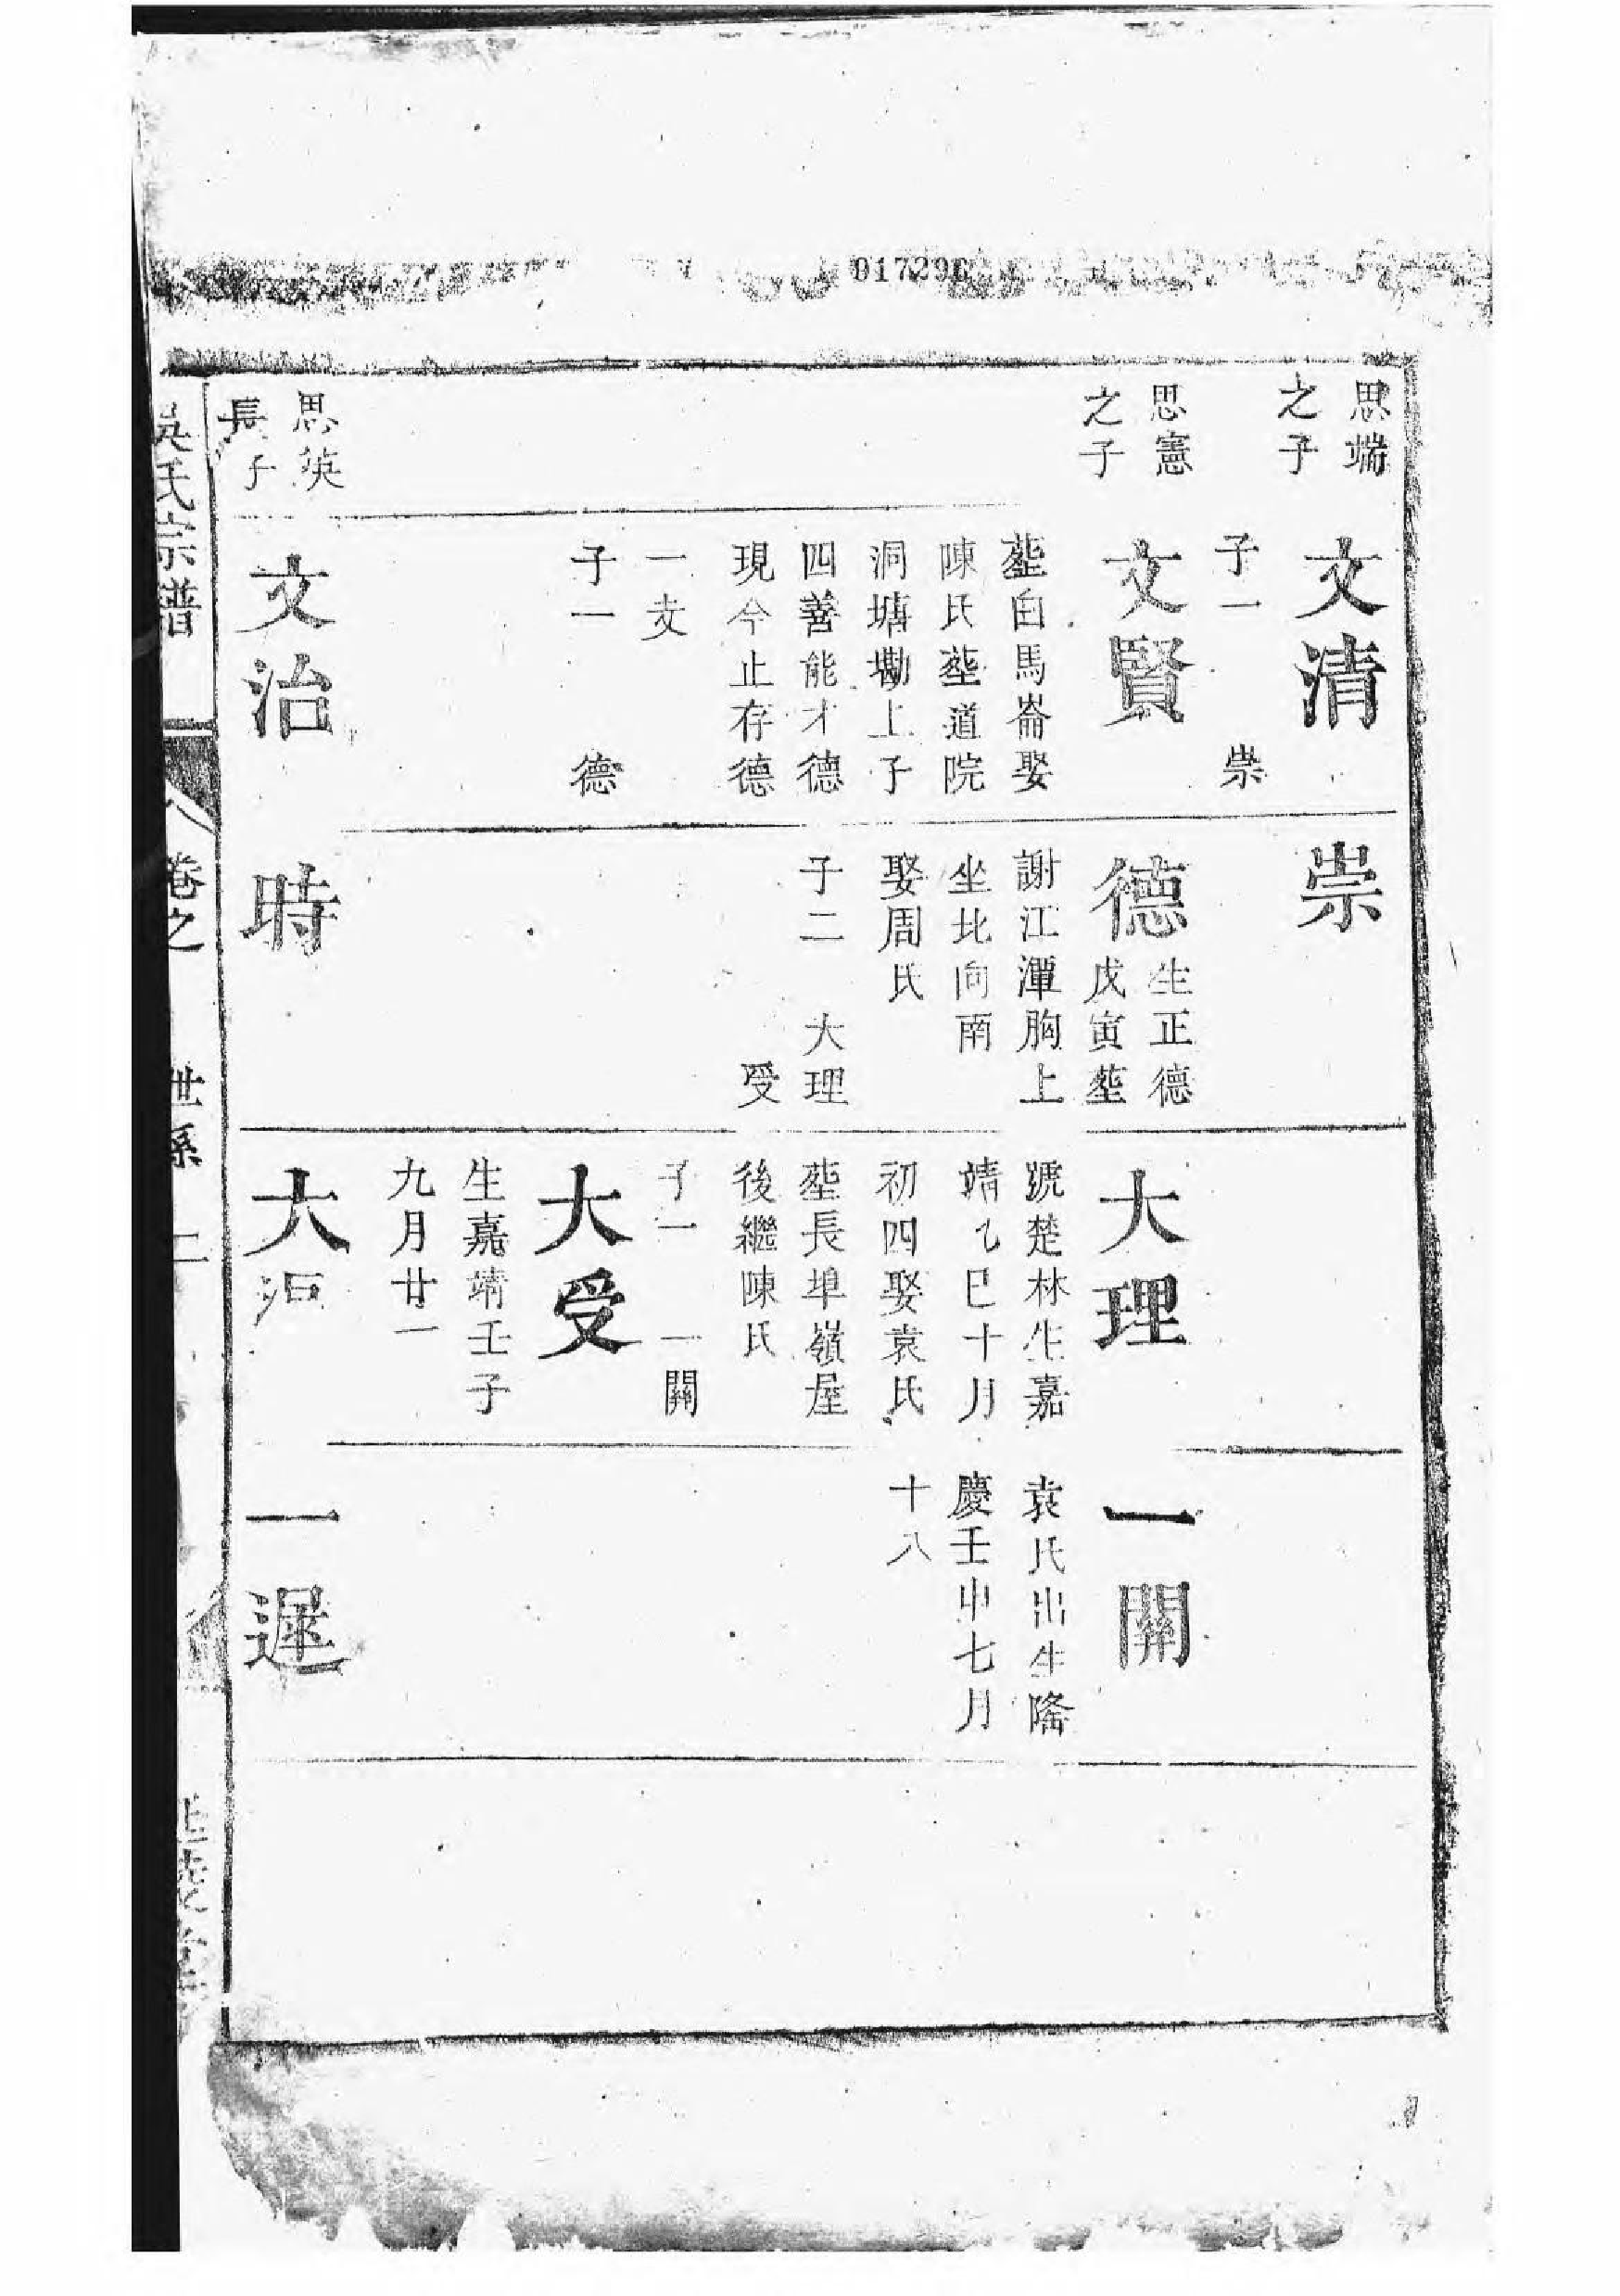 017296
思端
之子
思憲
之子
思英
長子
文清
子一 崇
文賢
塟白馬崙娶
陳氏塟道院
洞塘墈上子
四善能才德
現今止存德
一支
子一 德
文治
崇
德
生正德
戊寅塟
謝江潭胸上
坐北向南
娶周氏
子二 大理
受
時
大理
號楚林生嘉
靖乙巳十月
初四娶袁氏
塟長埠嶺屋
後繼陳氏
子一 一關
大受
生嘉靖壬子
九月廿一
大
一關
袁氏出生隆
慶壬申七月
十八
一遲
吳氏宗譜
卷之
世系 二